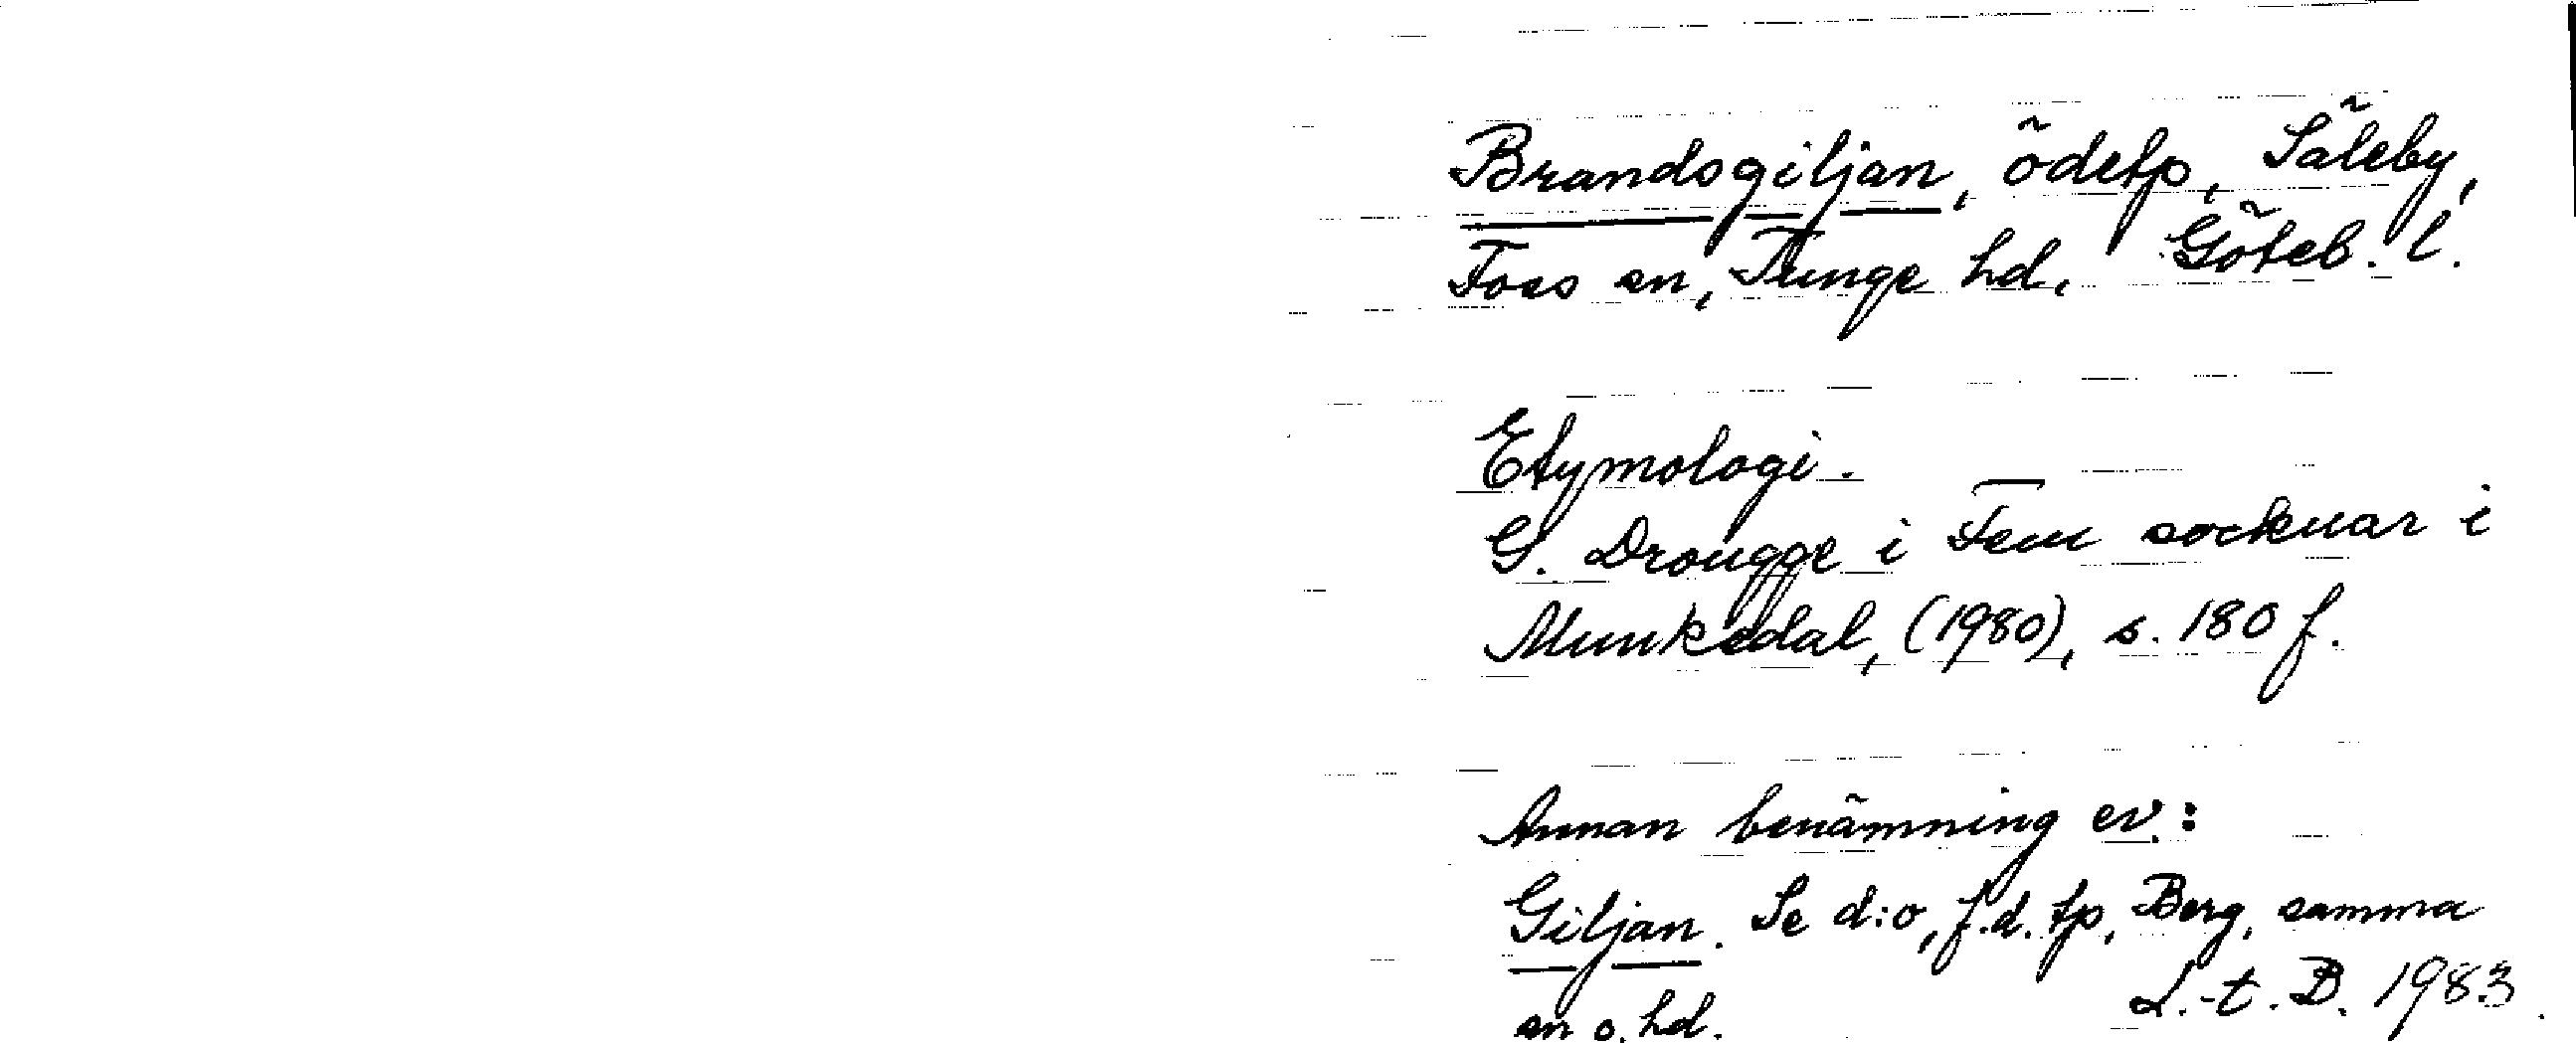 Brandsgiljan, ödetp, Säleby,
Foss sn, Tunge hd. Göteb. l.
Etymologi.
G. Drougge i Fem socknar i
Munkedal, (1980), s. 180 f.
Annan benämning ev.:
Giljan. Se d:o, f.d. tp, Berg, samma
sn o. hd.
L.-t. B. 1983.